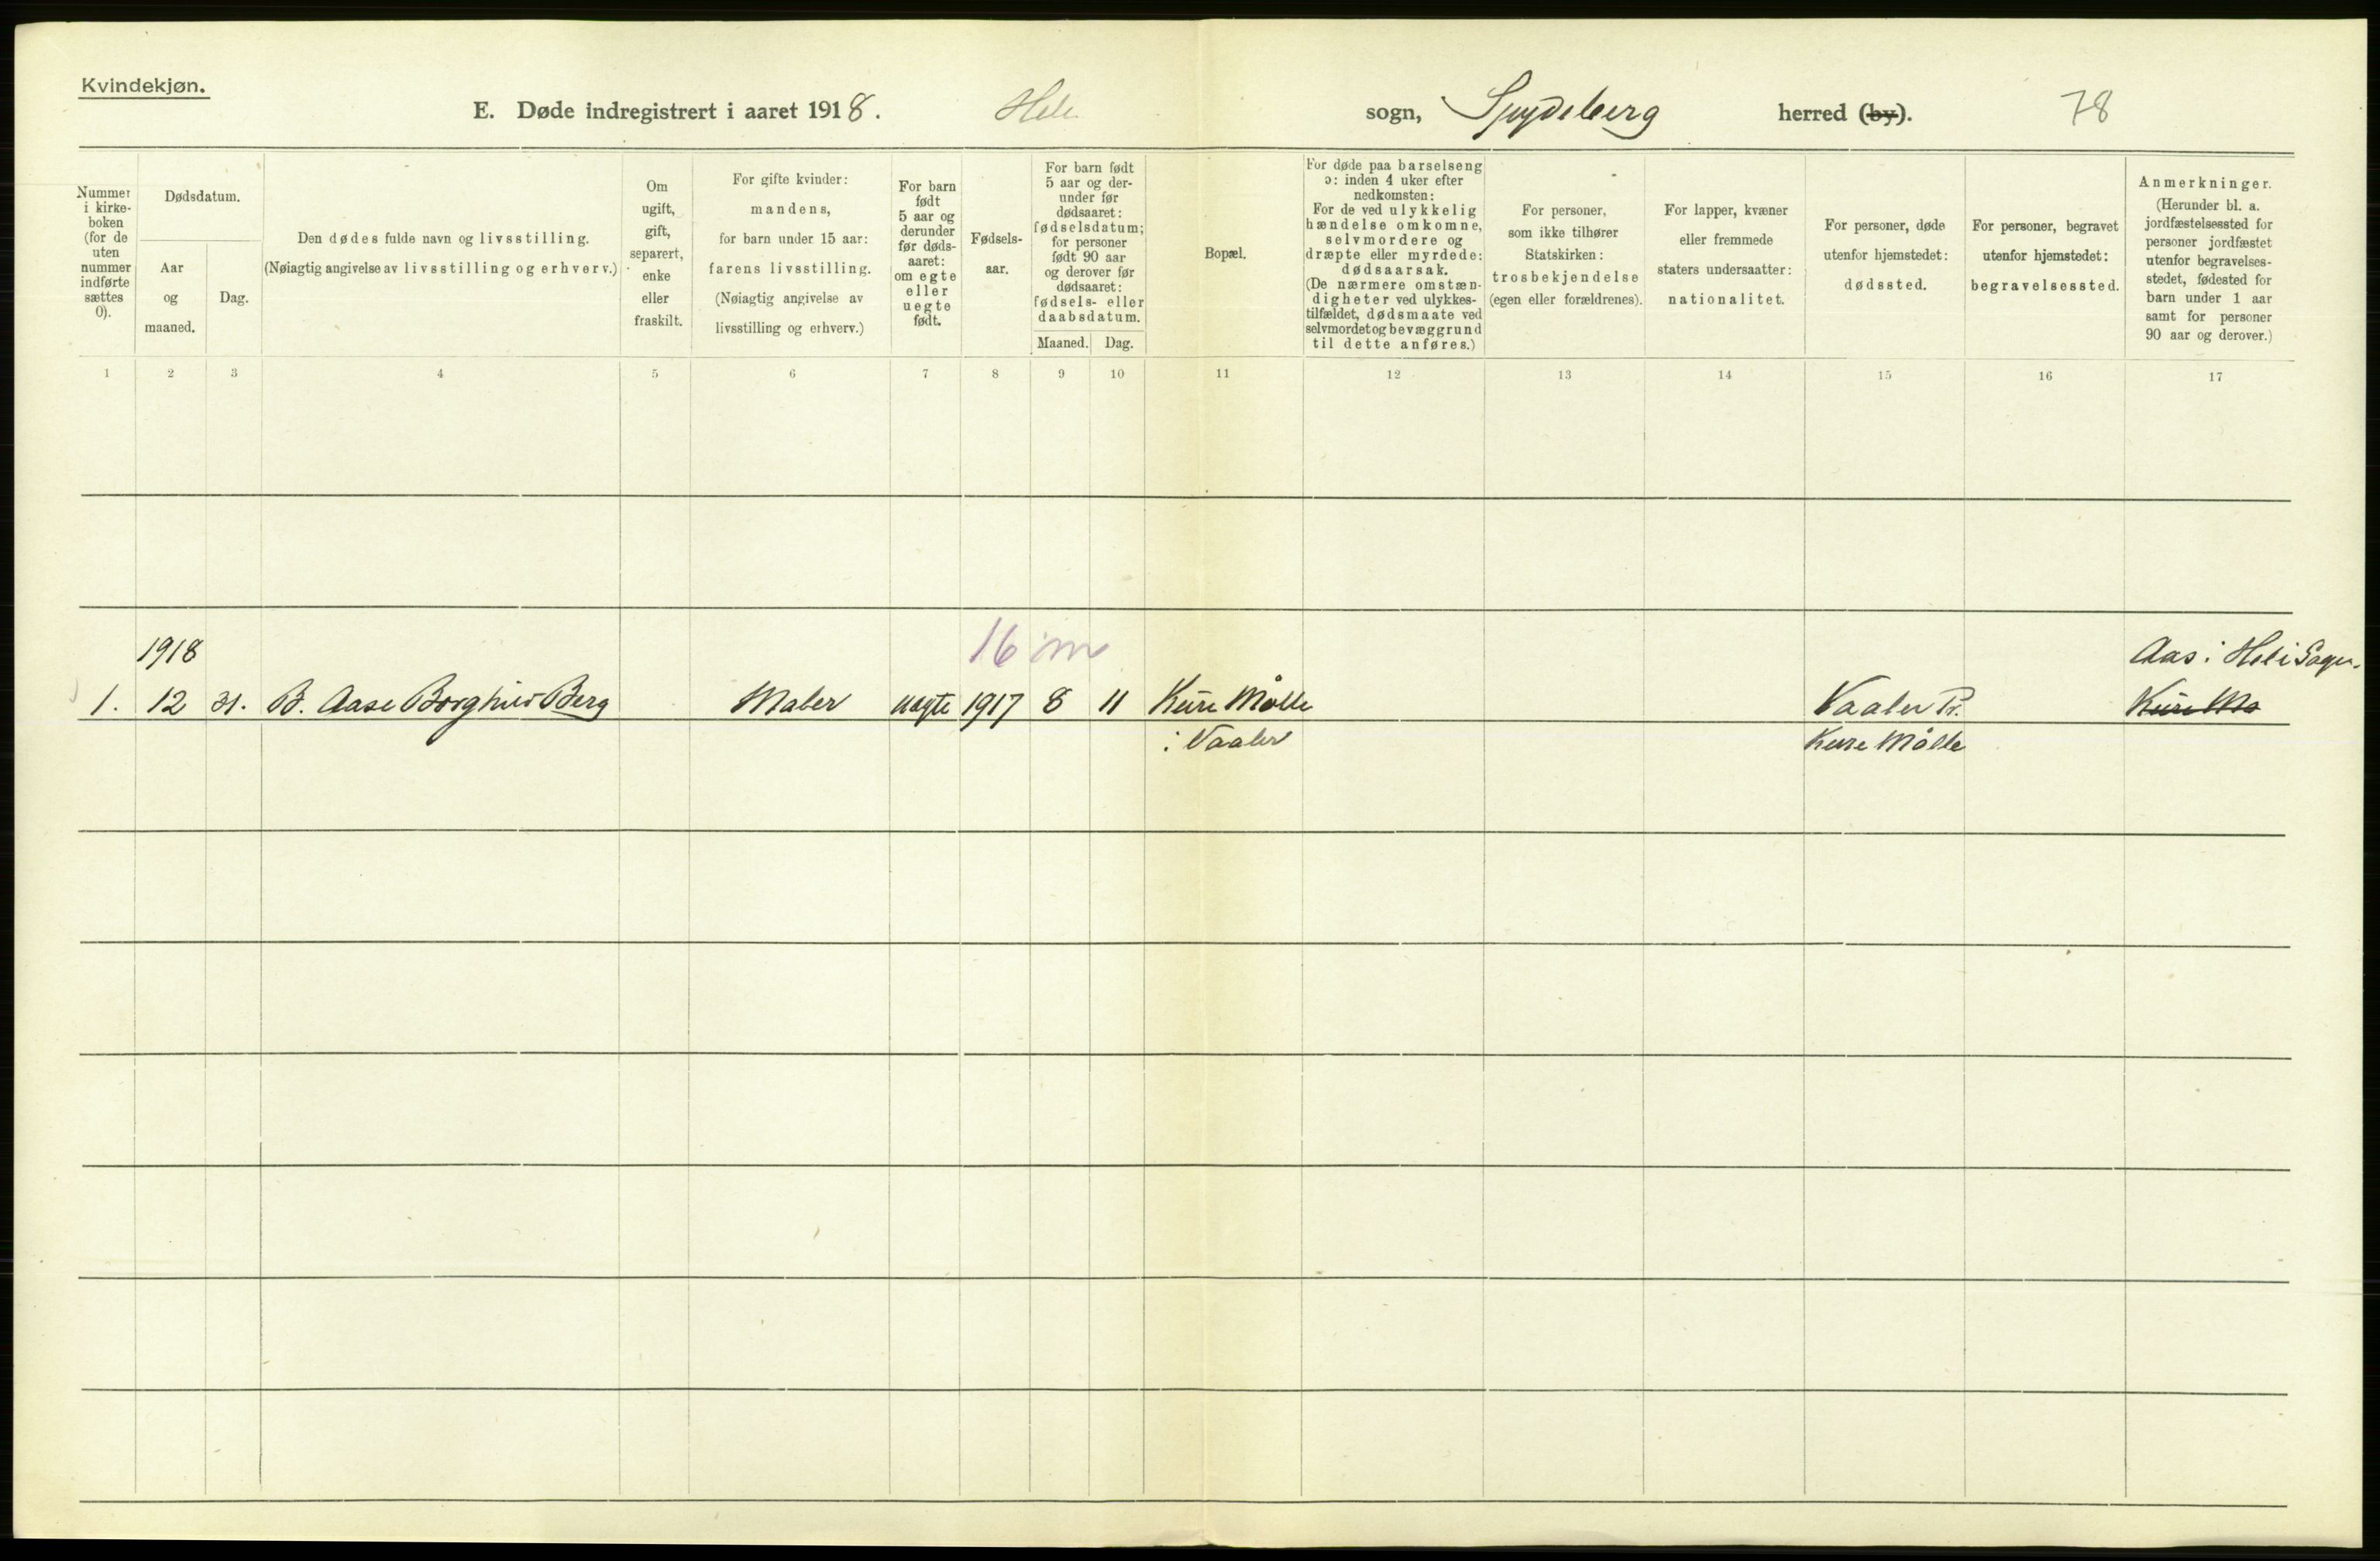 Kvindekjøn.
E. Døde indregistrert i aaret 1918. Heli sogn, Spydeberg herred (by). 78
Nummer i kirke- boken (for de uten nummer indførte sættes 0).
Dødsdatum.
Aar og maaned.
Dag.
Den dødes fulde navn og livsstilling.
(Nøiagtig angivelse av livsstilling og erhverv.)
Om ugift, gift, separert, enke eller fraskilt.
For gifte kvinder:
mandens,
for barn under 15 aar:
farens livsstilling.
(Nøiagtig angivelse av
livsstilling og erhverv.)
For barn født 5 aar og derunder før døds- aaret: om egte eller uegte født.
Fødsels- aar.
For barn født
5 aar og der-
under før
dødsaaret:
fødselsdatum;
for personer
født 90 aar
og derover før
dødsaaret:
fødsels- eller
daabsdatum.
Maaned. Dag.
Bopæl.
For døde paa barselseng
ɔ: inden 4 uker efter
nedkomsten:
For de ved ulykkelig
hændelse omkomne,
selvmordere og
dræpte eller myrdede:
dødsaarsak.
(De nærmere omstæn-
digheter ved ulykkes-
tilfældet, dødsmaate ved
selvmordet og bevæggrund
til dette anføres.)
For personer,
som ikke tilhører
Statskirken:
trosbekjendelse
(egen eller forældrenes).
For lapper, kvæner
eller fremmede
staters undersaatter:
nationalitet.
For personer, døde
utenfor hjemstedet:
dødssted.
For personer, begravet
utenfor hjemstedet:
begravelsessted.
Anmerkninger.
(Herunder bl. a.
jordfæstelsessted for
personer jordfæstet
utenfor begravelses-
stedet, fødested for
barn under 1 aar
samt for personer
90 aar og derover.)
1 2 3 4 5 6 7 8 9 10 11 12 13 14 15 16 17
1918 16 m Aas i Heli Sogn.
1. 12 31. B. Aase Borghild Berg Maler uegte 1917 8 11 Kure Mølle Vaaler Pr. Kure Mø
i Vaaler Kure Mølle